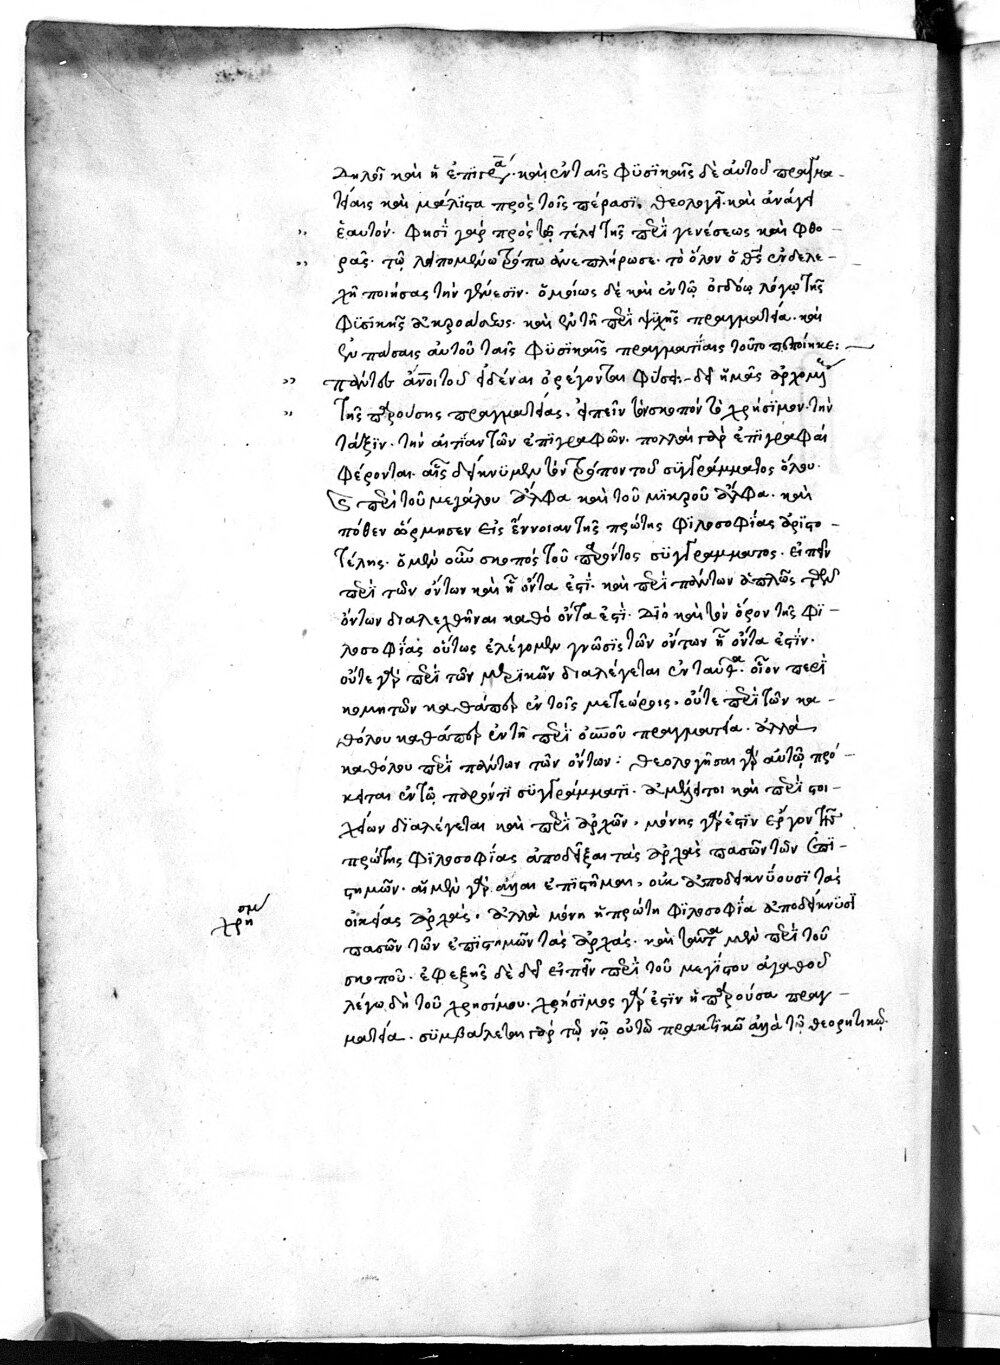 δηλοῖ καὶ ἡ ἐπιγρα. καὶ ἐν ταῖς φϋσϊκαῖς δὲ αὐτοῦ πραγμα-
τείαις καὶ μάλϊστα πρὸς τοῖς πέρασϊ. θεολογεῖ. καὶ ἀνάγει
ἑαυτόν. φησῒ γὰρ πρὸς τῷ τέλει τῆς περῒ γενέσεως καὶ φθο-
ρᾶς. τῷ λειπομένω τρόπω ἀνεπλήρωσε. τὸ ὅλον ὁ θς ἐνδελε-
χῆ ποιήσας τὴν γένεσϊν. ὁμοίως δὲ καὶ ἐν τῷ ὀγδόω λόγω τῆς
φϋσϊκῆς ἀκροάσεως. καὶ ἐν τῆ περῒ ψϋχῆς πραγματεία. καὶ
ἐν πάσαις αὐτοῦ ταῖς φϋσϊκαῖς πραγματείαις τοῦτο πεποίηκε:
πάντες ἄνοι τοῦ εἰδέναι ὀρέγονται φύσει.- δεῖ ἡμᾶς ἀρχομένους
τῆς παρούσης πραγματείας. εἰπεῖν τὸν σκοπὸν τὸ χρήσϊμον. τὴν
τάξϊν. τὴν αἰτίαν τῶν ἐπϊγραφῶν. πολλαὶ γὰρ ἐπϊγραφαὶ
φέρονται. αἷς δείκνϋμεν τὸν τρόπον τοῦ σϋγγράμματος ὅλου.
περῒ τοῦ μεγάλου ἄλφα καὶ τοῦ μϊκροῦ ἄλφα. καὶ
πόθεν ὥρμησεν εἰς ἔννοιαν τῆς πρώτης φϊλοσοφίας ἀρϊστο-
τέλης. ὁ μὲν οὖν σκοπὸς τοῦ παρόντος σϋγγράμματος. εἰπεῖν
περῒ τῶν ὄντων καὶ ἧ ὄντα ἐστῒ. καὶ περῒ πάντων ἁπλῶς τῶν
ὄντων διαλεχθῆναι καθὸ ὄντα ἐστῒ. διὸ καὶ τὸν ὅρον τῆς φϊ-
λοσοφίας οὕτως ἐλέγομεν γνῶσϊς τῶν ὄντων ἧ ὄντα ἐστίν.
οὔτε γὰρ περῒ τῶν μερϊκῶν διαλέγεται ἐνταῦθα. οἷον περῒ
κομητῶν καθάπερ ἐν τοῖς μετεώροις. οὔτε περῒ τῶν κα-
θόλου καθάπερ ἐν τῆ περῒ οὐνοῦ πραγματεία. ἀλλὰ
καθόλου περῒ πάντων τῶν ὄντων: θεολογῆσαι γὰρ αὐτῷ πρό-
κειται ἐν τῷ παρόντϊ σϋγγράμματϊ. ἀμέλει τοι καὶ περῒ στοι-
χείων δϊαλέγεται καὶ περῒ ἀρχῶν. μόνης γάρ ἐστϊν ἔργον τῆς
πρώτης φϊλοσοφίας ἀποδεῖξαι τὰς ἀρχὰς πασῶν τῶν ἐπϊ-
στημῶν. αἱ μὲν γὰρ ἄλλαι ἐπϊστῆμαι, οὐκ ἀποδεικνΰουσϊ τὰς
οἰκείας ἀρχάς. ἀλλὰ μόνη ἡ πρώτη φϊλοσοφία ἀποδείκνϋσϊ
πασῶν τῶν ἐπϊστημῶν τὰς ἀρχάς. καὶ ταῦτα μὲν περῒ τοῦ
σκοποῦ. ἐφεξῆς δὲ δεῖ εἰπεῖν περῒ τοῦ μεγΐστου ἀγαθοῦ
λέγω δὴ τοῦ χρησίμου. χρήσϊμος γάρ ἐστϊν ἡ παροῦσα πραγ-
ματεία. σϋμβάλλεται γὰρ τῷ νῷ οὐ τῷ πρακτϊκῶ ἀλλὰ τῷ θεορητικῷ.
χρη